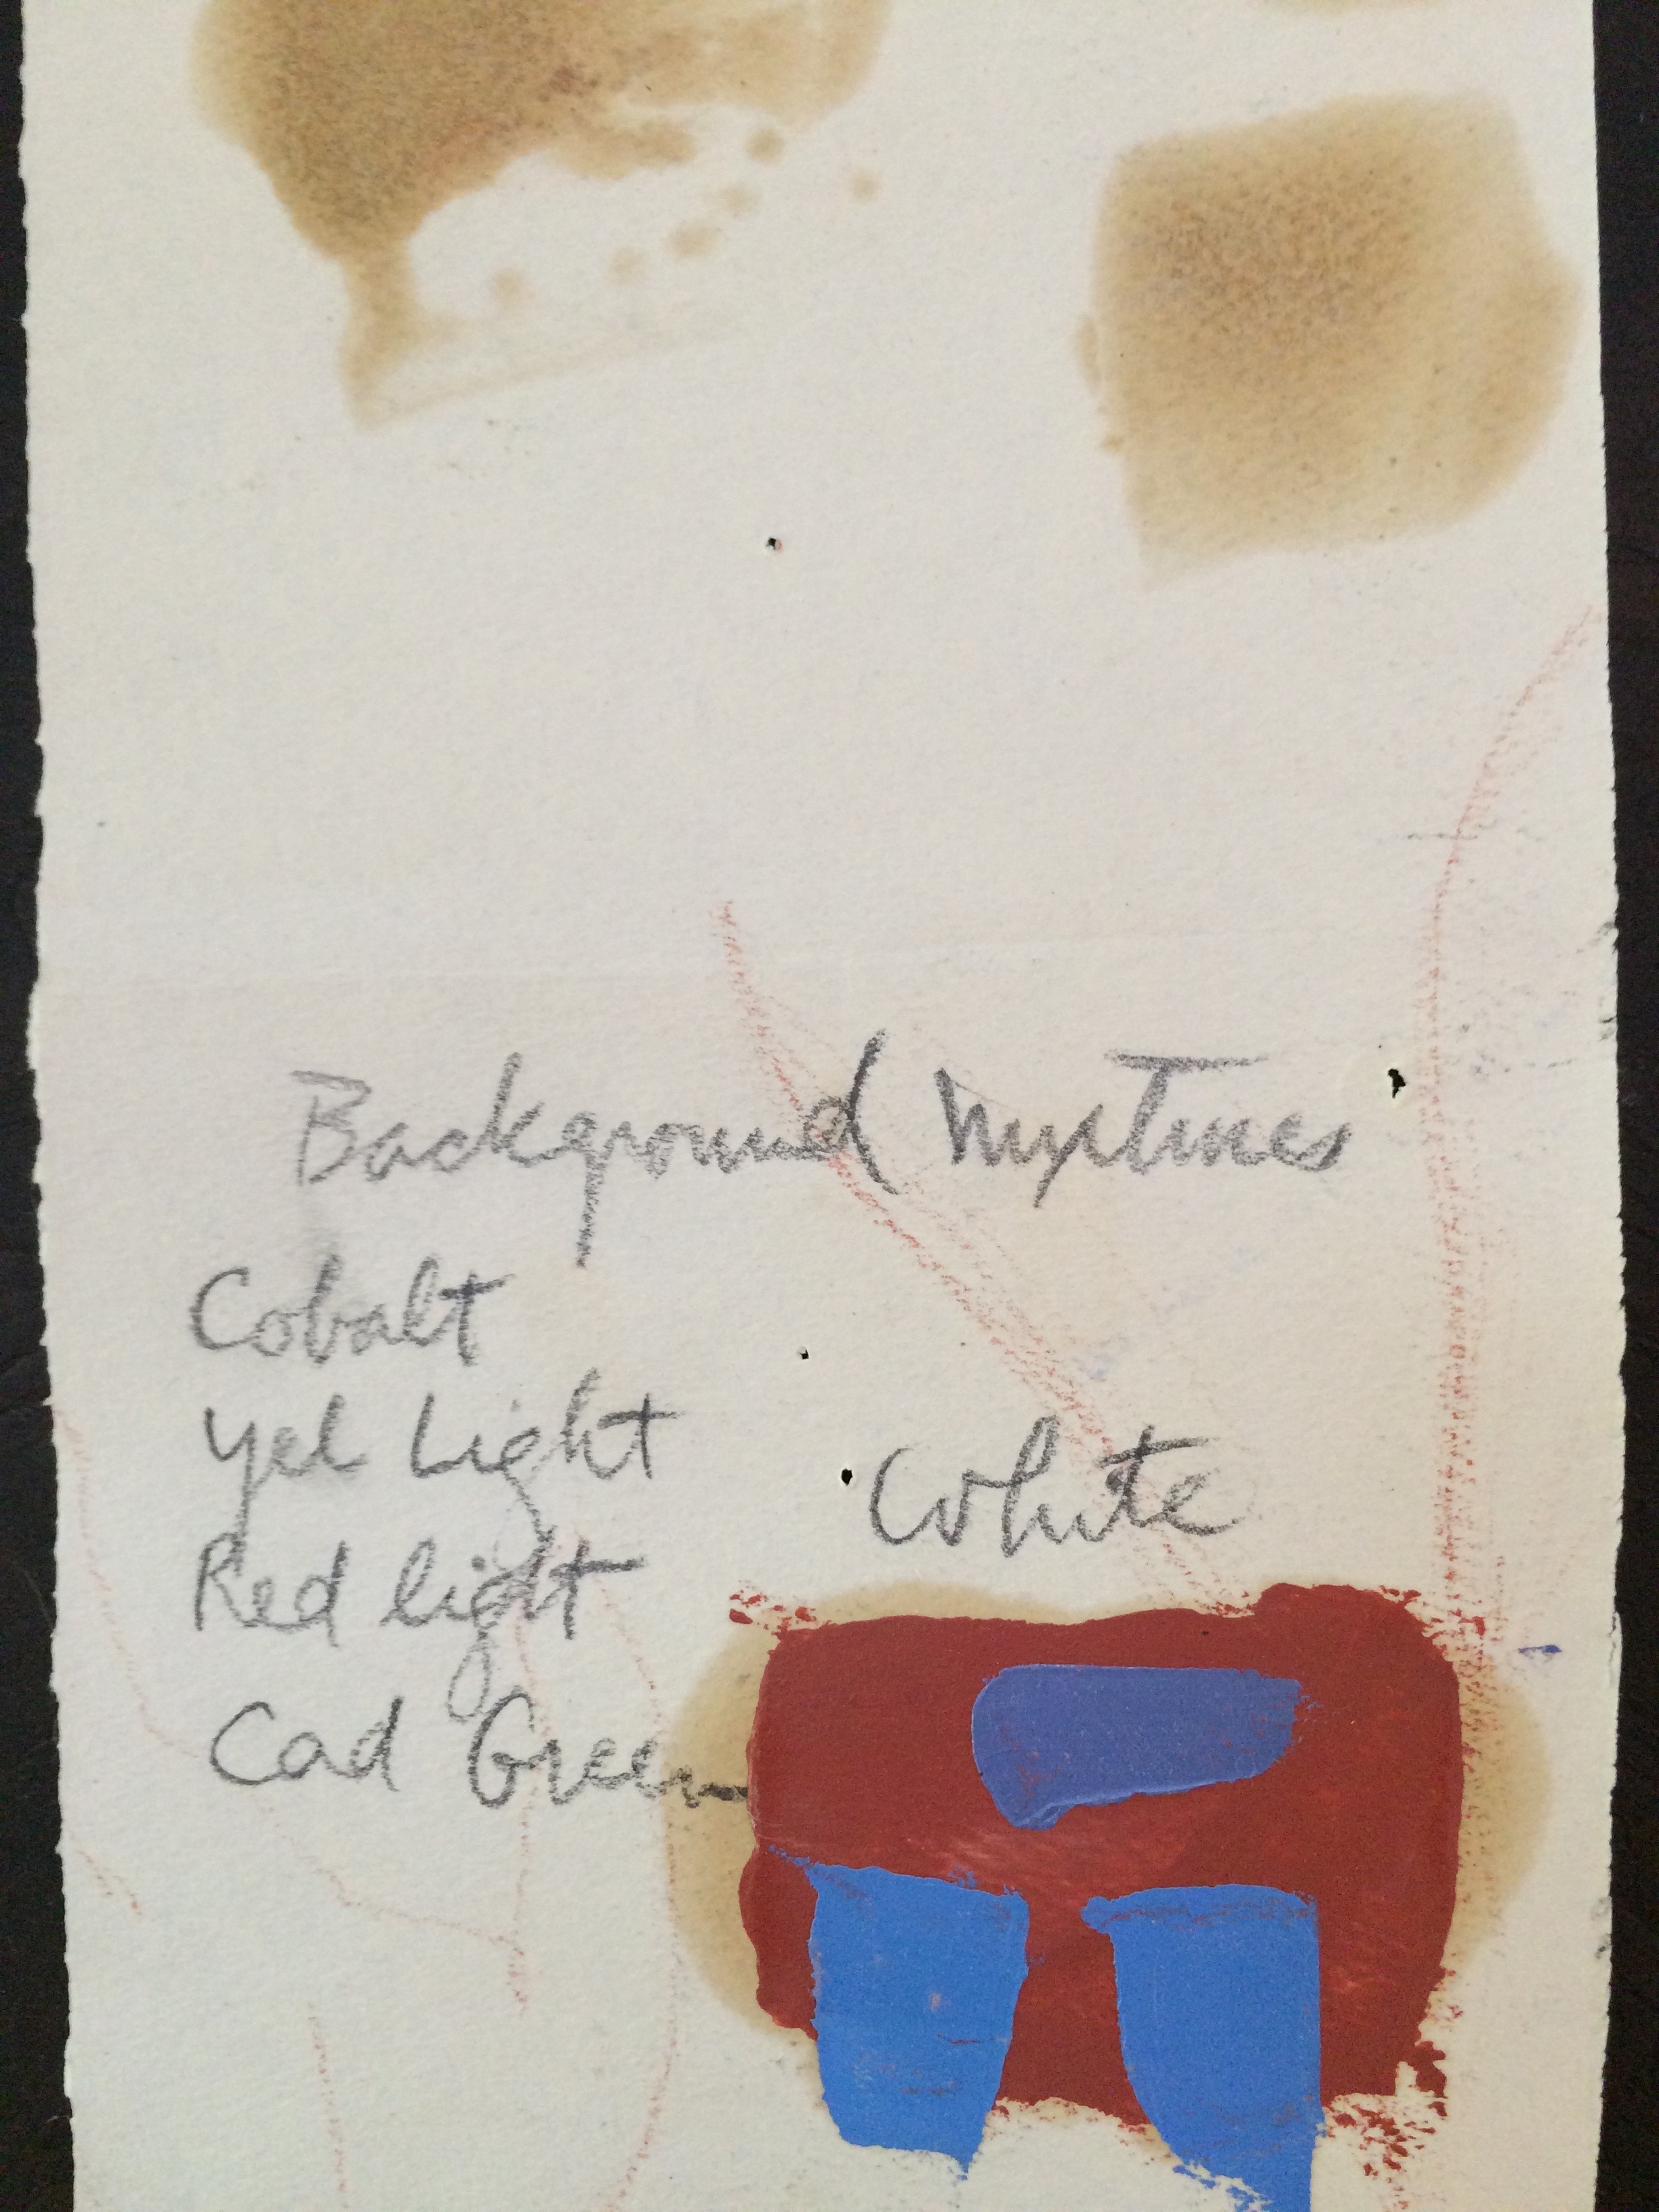 Background Mixtures
Cobalt
Yel Light
White
Red light
Cad Green